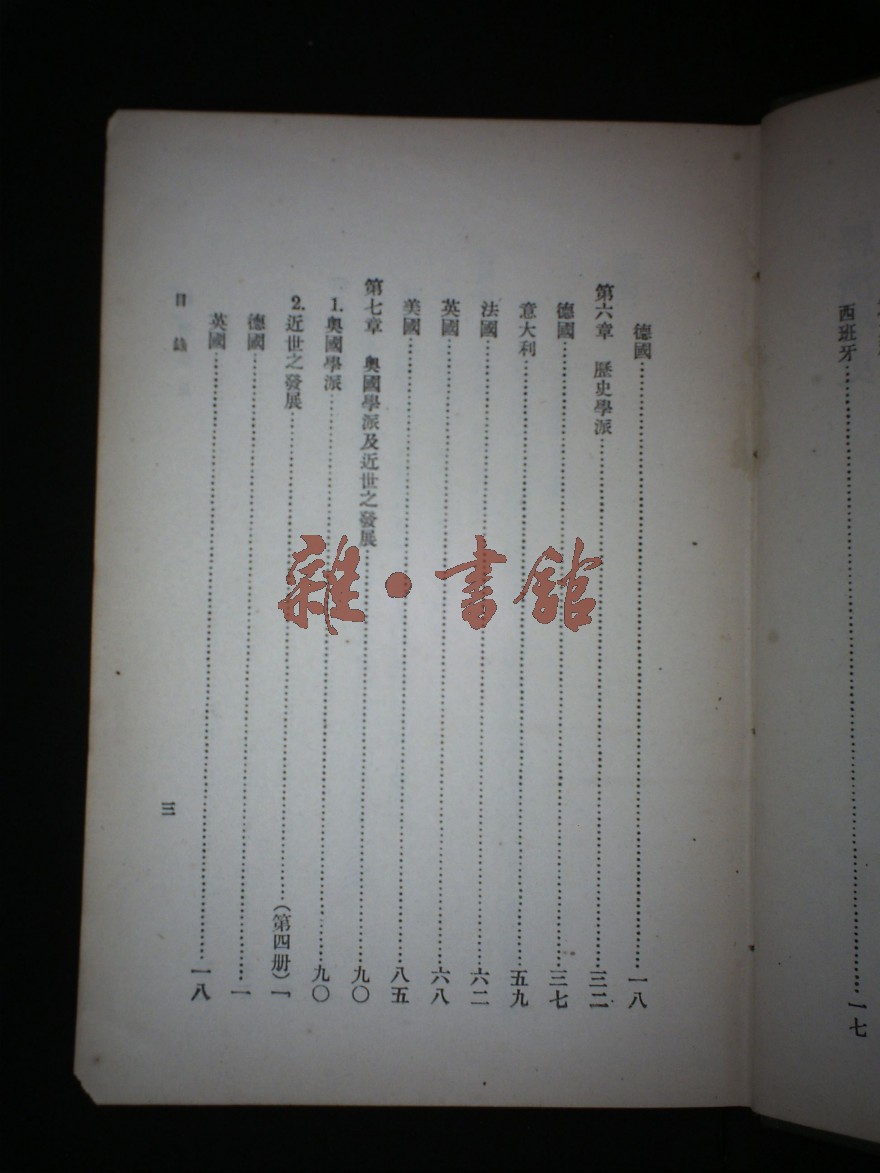 西班牙……一七
德國……一八
第六章 歷史學派……三二
德國……三七
意大利……五九
法國……六二
英國……六八
美國……八五
第七章 奧國學派及近世之發展……九〇
1. 奧國學派……九〇
2. 近世之發展……(第四册)一
德國……一
英國……一八
目錄
三
雜·書館